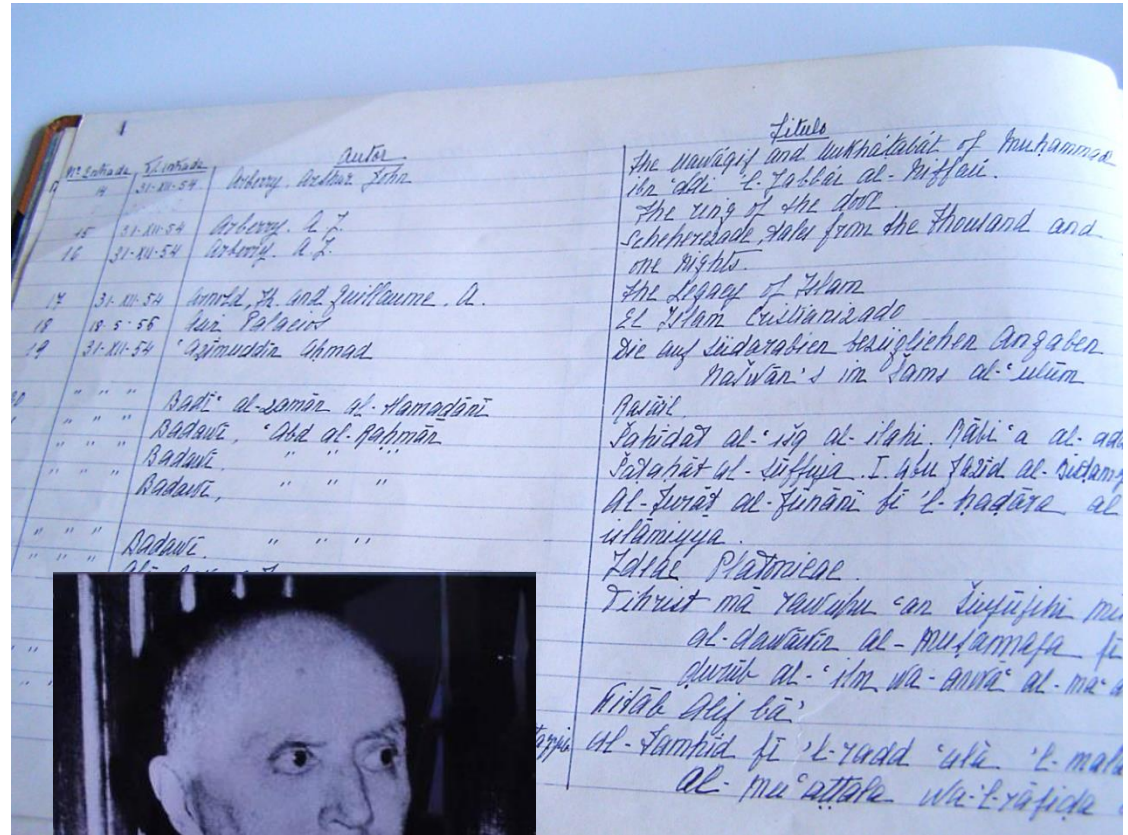 Nº Entrada F. entrada Autor Titulo
14 31-XII-54 Arberry, Arthur John The mawāqif and mukhātabāt of Muḥammad
ibn 'Abdi 'l-Jabbār al-Niffarī.
The ring of the dove.
15 31-XII-54 Arberry, A. J.
16 31-XII-54 Arberry, A. J. Scheherezade, tales from the Thousand and
one nights.
17 31-XII-54 Arnold, Th. and Guillaume, A. The Legacy of Islam
18 18-5-56 Asín Palacios El Islam Cristianizado
19 31-XII-54 'Azīmuddīn Ahmad Die auf südarabien bezüglichen Angaben
Našwān's im Šams al-'ulūm
20 " " " Badī' al-zamān al-Hamadānī Rasā'il
" " " Badawī, 'Abd al-Rahmān Šahīdat al-'išq al-ilahi. Rābi'a al-
" " " Badawī, " " " Šaṭaḥāt al-ṣūfiyya. I. Abu Yazīd al-
Badawī, " " " Al-Turāt al-Yūnānī fī 'l-ḥaḍāra al
islāmiyya.
" " " Badawī, " " " Ideae Platonicae
Fihrist mā rawāhu 'an šuyūjihi
al-dawāwīn al-muṣannafa fī
" " ḍurūb al-'ilm wa-anwā' al-
" " Kitāb Alif bā'
al-Tamhīd fī 'l-radd 'alà 'l-
al-mu'aṭṭala wa-l-rāfiḍa